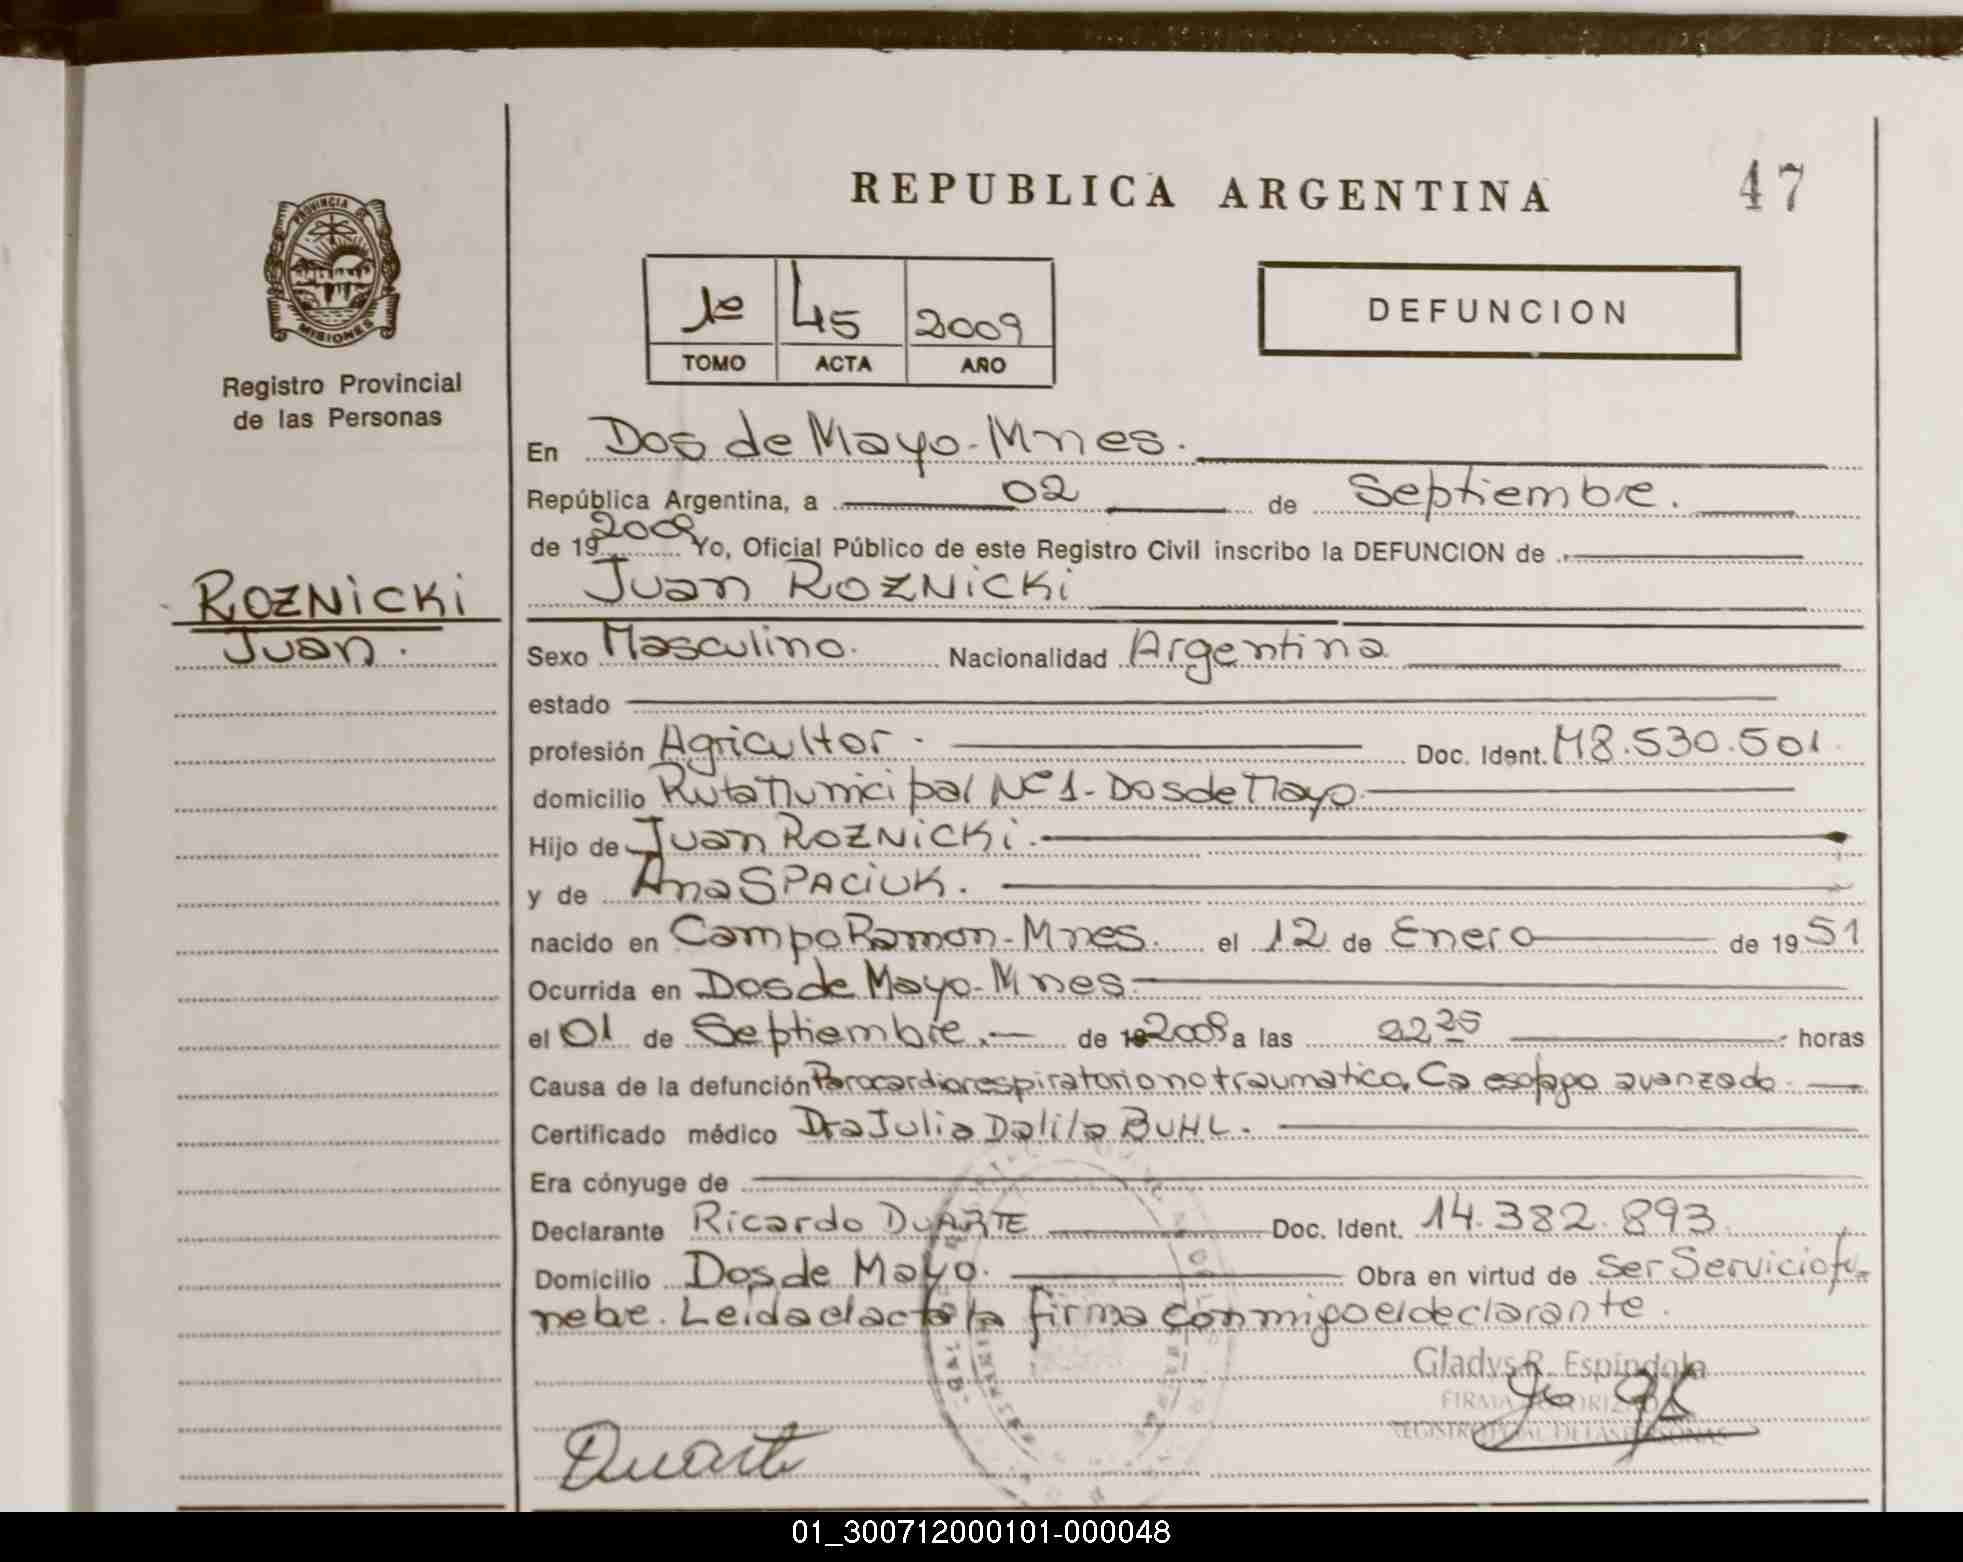 REPUBLICA ARGENTINA
47
PROVINCIA DE
MISIONES
Registro Provincial
de las Personas
1º 45 2009
TOMO ACTA AÑO
DEFUNCION
En Dos de Mayo-Mnes.
República Argentina, a 02 de Septiembre.
de 19 2009 Yo, Oficial Público de este Registro Civil inscribo la DEFUNCION de
Juan ROZNiCKi
ROZNiCKi
Juan.
Sexo Masculino. Nacionalidad Argentina
estado
profesión Agricultor. Doc. Ident. M8.530.501.
domicilio Ruta Municipal Nº1-Dos de Mayo
Hijo de Juan ROZNiCKi.
y de Ana SPACiUK.
nacido en Campo Ramon-Mnes. el 12 de Enero de 1951
Ocurrida en Dos de Mayo-Mnes.
el 01 de Septiembre. de 2009 a las 22 25 horas
Causa de la defunción Parocardiorespiratorio no traumatico, Ca esofago avanzado.
Certificado médico Dra Julia Dalila BUHL.
Era cónyuge de
Declarante Ricardo DUARTE Doc. Ident. 14.382.893
Domicilio Dos de Mayo. Obra en virtud de ser Servicio fu-
nebre. Leida el acta la firma conmigo el declarante.
Gladys R. Espindola
FIRMA AUTORIZADA
REGISTRO PCIAL. DE LAS PERSONAS
Duarte
01_300712000101-000048